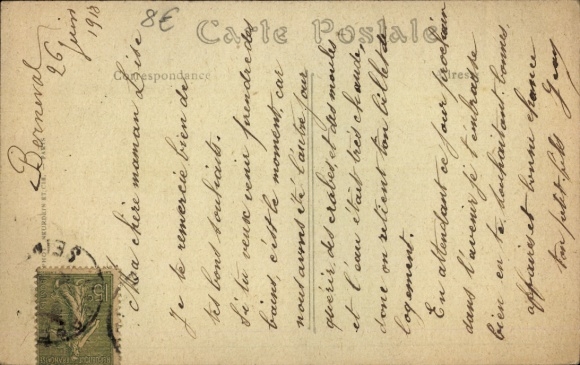 8€
Carte Postale
Correspondance
Berneval
26 juin 1918
Ma chère maman Lise
Je te remercie bien de
tes bons souhaits.
Si tu veux venir prendre des
bains, c'est le moment, car
nous avons été l'autre jour
quérir des crabes, et des moules
et l'eau était très chaude,
donc on retient ton billet de
logement.
En attendant ce jour prochain
dans l'avenir je t'embrasse
bien en te souhaitant bonnes
affaires et bonne chance
ton petit-fils